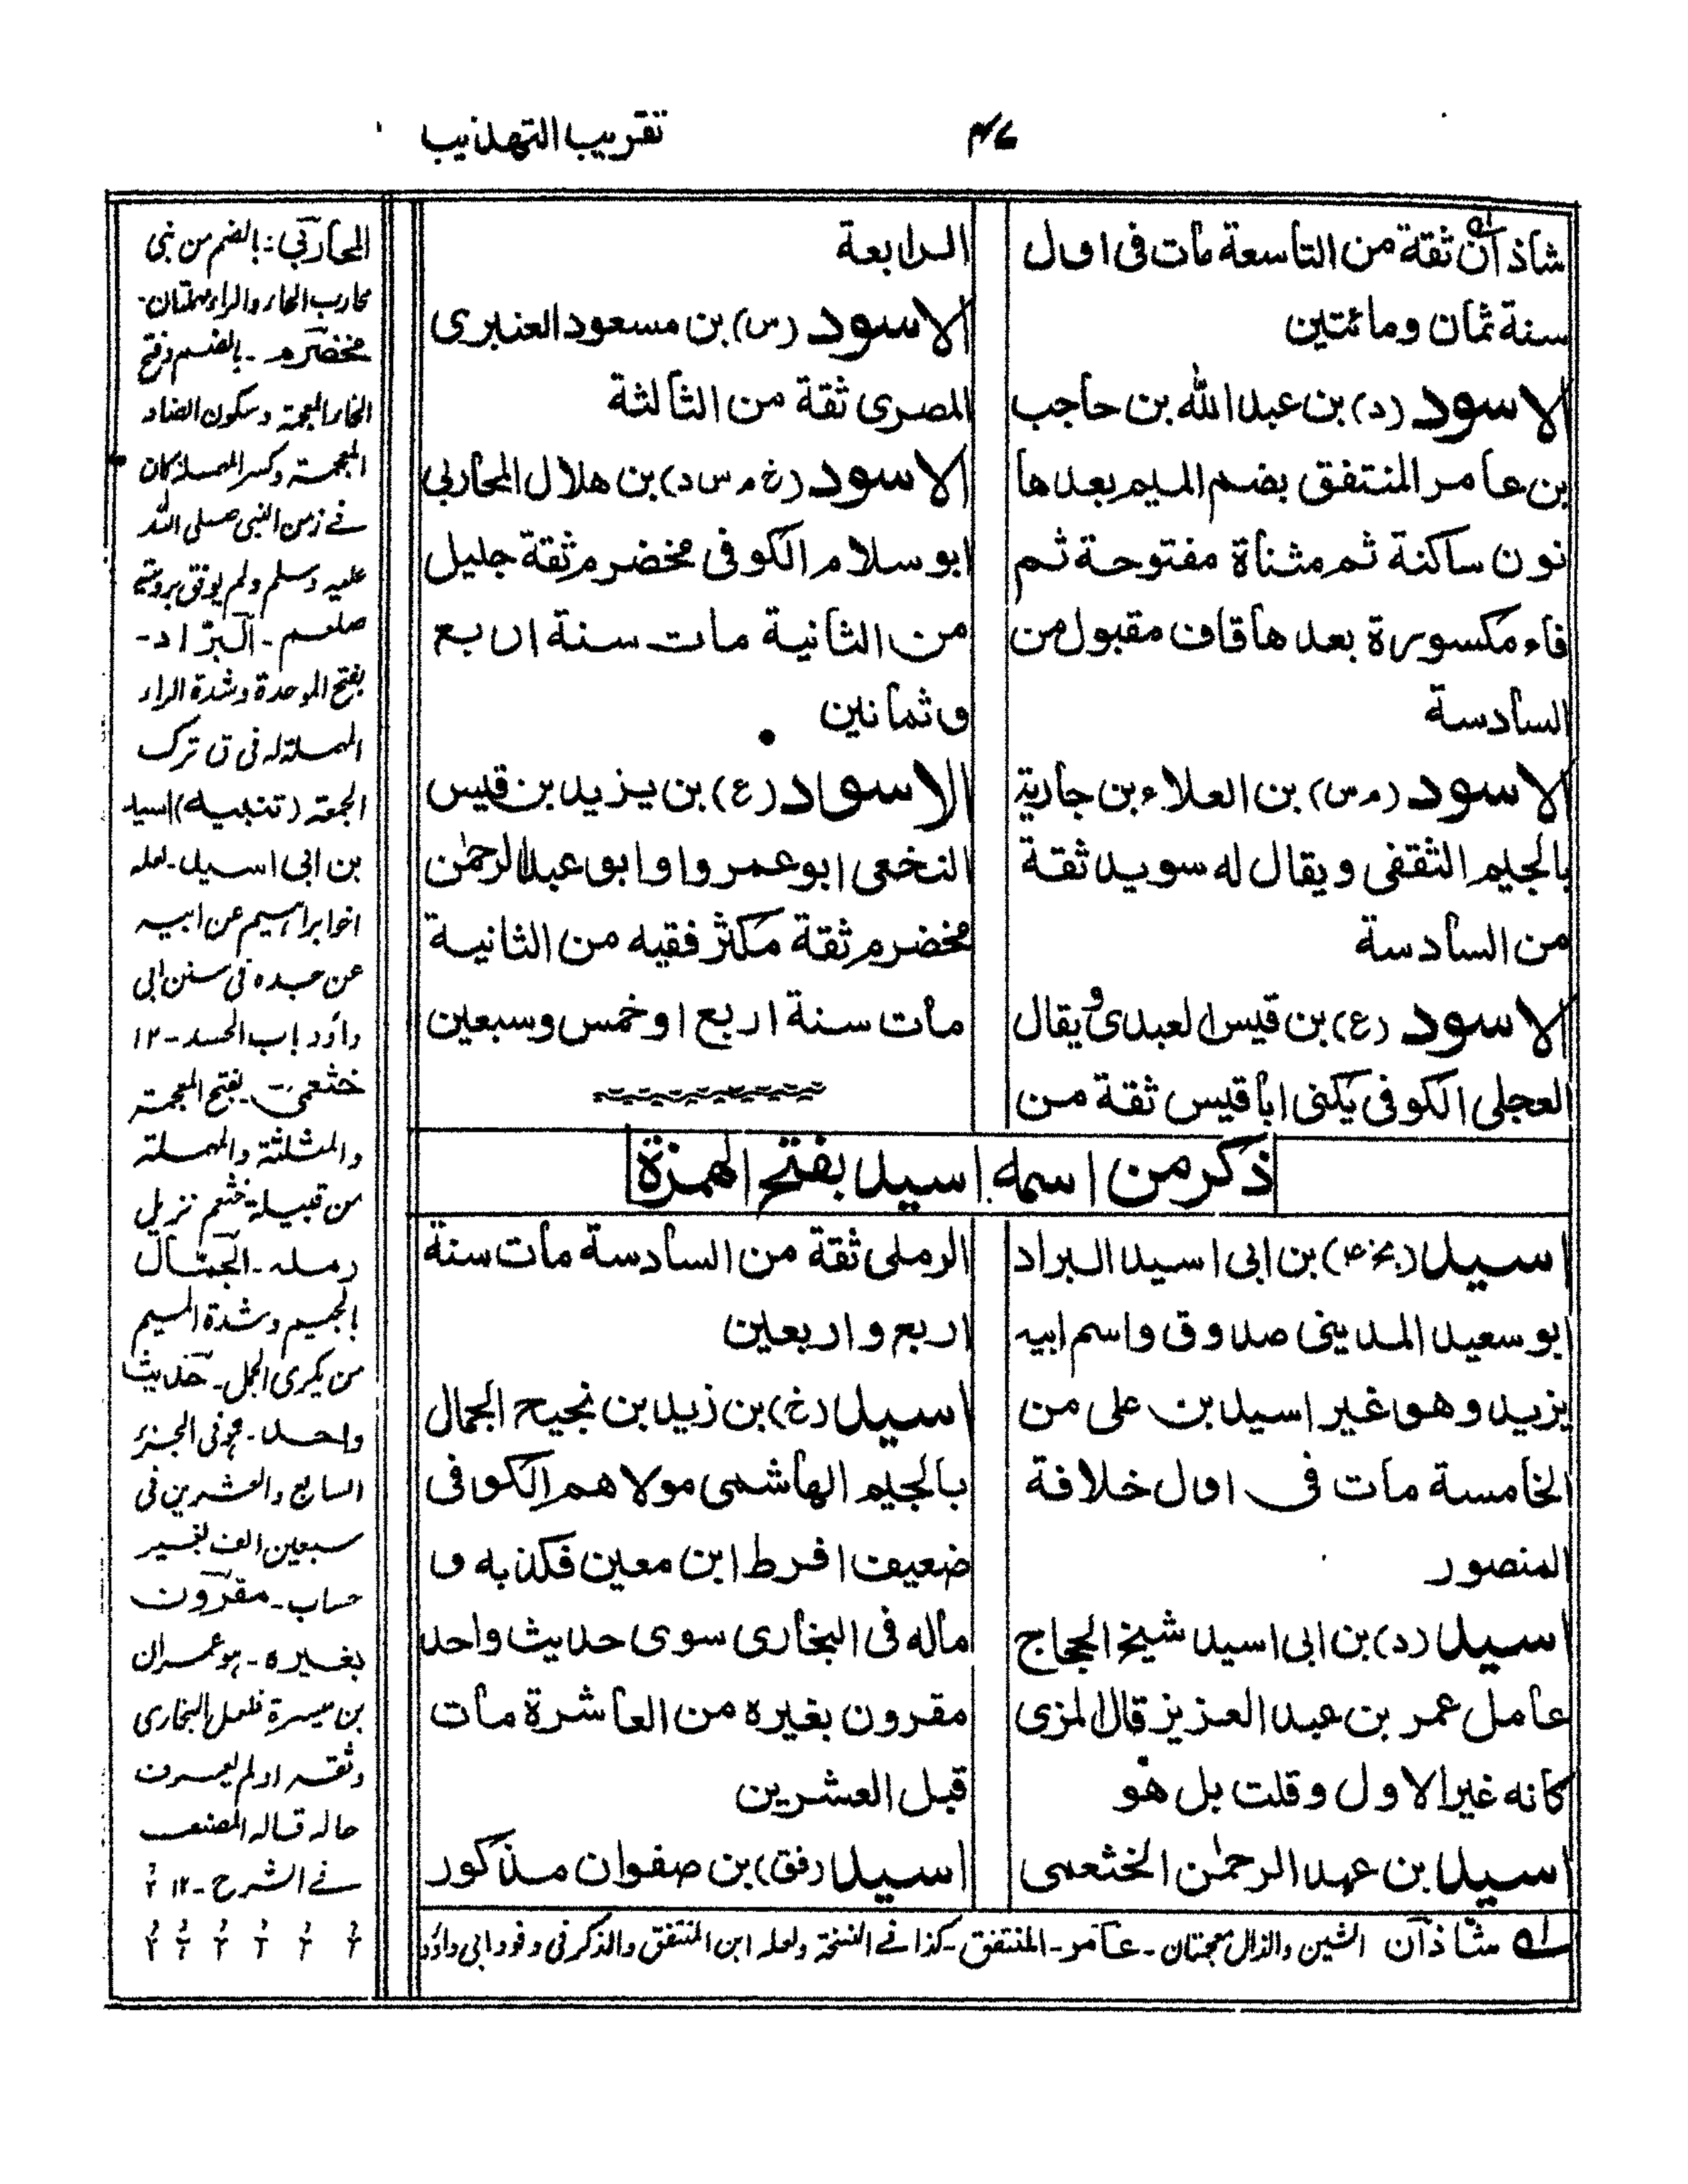 تقريب التهذيب
۴۷
شاذان ثقة من التاسعة مات فى اول
سنة ثمان ومائتين
الاسود (د) بن عبد الله بن حاجب
بن عامر المنتفق بضم الميم بعدها
نون ساكنة ثم مثناة مفتوحة ثم
فاء مكسورة بعدها قاف مقبول من
السادسة
الاسود (م س) بن العلاء بن جارية
بالجيم الثقفى ويقال له سويد ثقة
من السادسة
الاسود (ع) بن قيس العبدى ويقال
العجلى الكوفى يكنى ابا قيس ثقة من
الرابعة
الاسود (س) بن مسعود العنبرى
المصرى ثقة من الثالثة
الاسود (خ م س د) بن هلال المحاربى
ابو سلام الكوفى مخضرم ثقة جليل
من الثانية مات سنة اربع
وثمانين
الاسود (ع) بن يزيد بن قيس
النخعى ابو عمرو او ابو عبد الرحمٰن
مخضرم ثقة مكثر فقيه من الثانية
مات سنة اربع او خمس وسبعين
ذكر من اسمه اسيد بفتح الهمزة
اسيد (بخ ۴) بن ابى اسيد البراد
ابو سعيد المدينى صدوق واسم ابيه
يزيد وهو غير اسيد بن على من
الخامسة مات فى اول خلافة
المنصور
اسيد (د) بن ابى اسيد شيخ الحجاج
عامل عمر بن عبد العزيز قال المزى
كانه غير الاول وقلت بل هو
اسيد بن عبد الرحمٰن الخثعمى
الرملى ثقة من السادسة مات سنة
اربع واربعين
اسيد (خ) بن زيد بن نجيح الجمال
بالجيم الهاشمى مولاهم الكوفى
ضعيف افرط ابن معين فكذبه و
ماله فى البخارى سوى حديث واحد
مقرون بغيره من العاشرة مات
قبل العشرين
اسيد (فق) بن صفوان مذكور
المحاربى: بالضم من بنى
محارب الحاء والراء مهملتان-
مخضرم - بالضم وفتح
الخاء المعجمة وسكون الضاد
المعجمة وكسر المهملة كان
فے زمن النبى صلى الله
عليه وسلم ولم يوفق برويته
صلعم - البراد -
بفتح الموحدة وشدة الراء
المهملة له فى ق ترك
الجمعة (تنبيه) اسيد
بن ابى اسيد - لعله
اخو ابراهيم عن ابيه
عن جده فى سنن ابى
داؤد باب الحسد - ١٢
خثعمى - بفتح المعجمة
والمثلثة والمهملة
من قبيلة خثعم نزيل
رمله - الجمال
بالجيم وشدة الميم
من يكرى الجمل - حديث
واحد - هو فى الجزء
السابع والعشرين فى
سبعين الف بغير
حساب - مقرون
بغيره - هو عمران
بن ميسرة فلعل البخارى
وثقه او لم يعرف
حاله قاله المصنف
فے الشرح - ١٢
له شاذان الشين والذال معجمتان - عامر - المنتفق - كذا فے النسخة ولعله ابن المنتفق والذكر فى وفود ابى داؤد